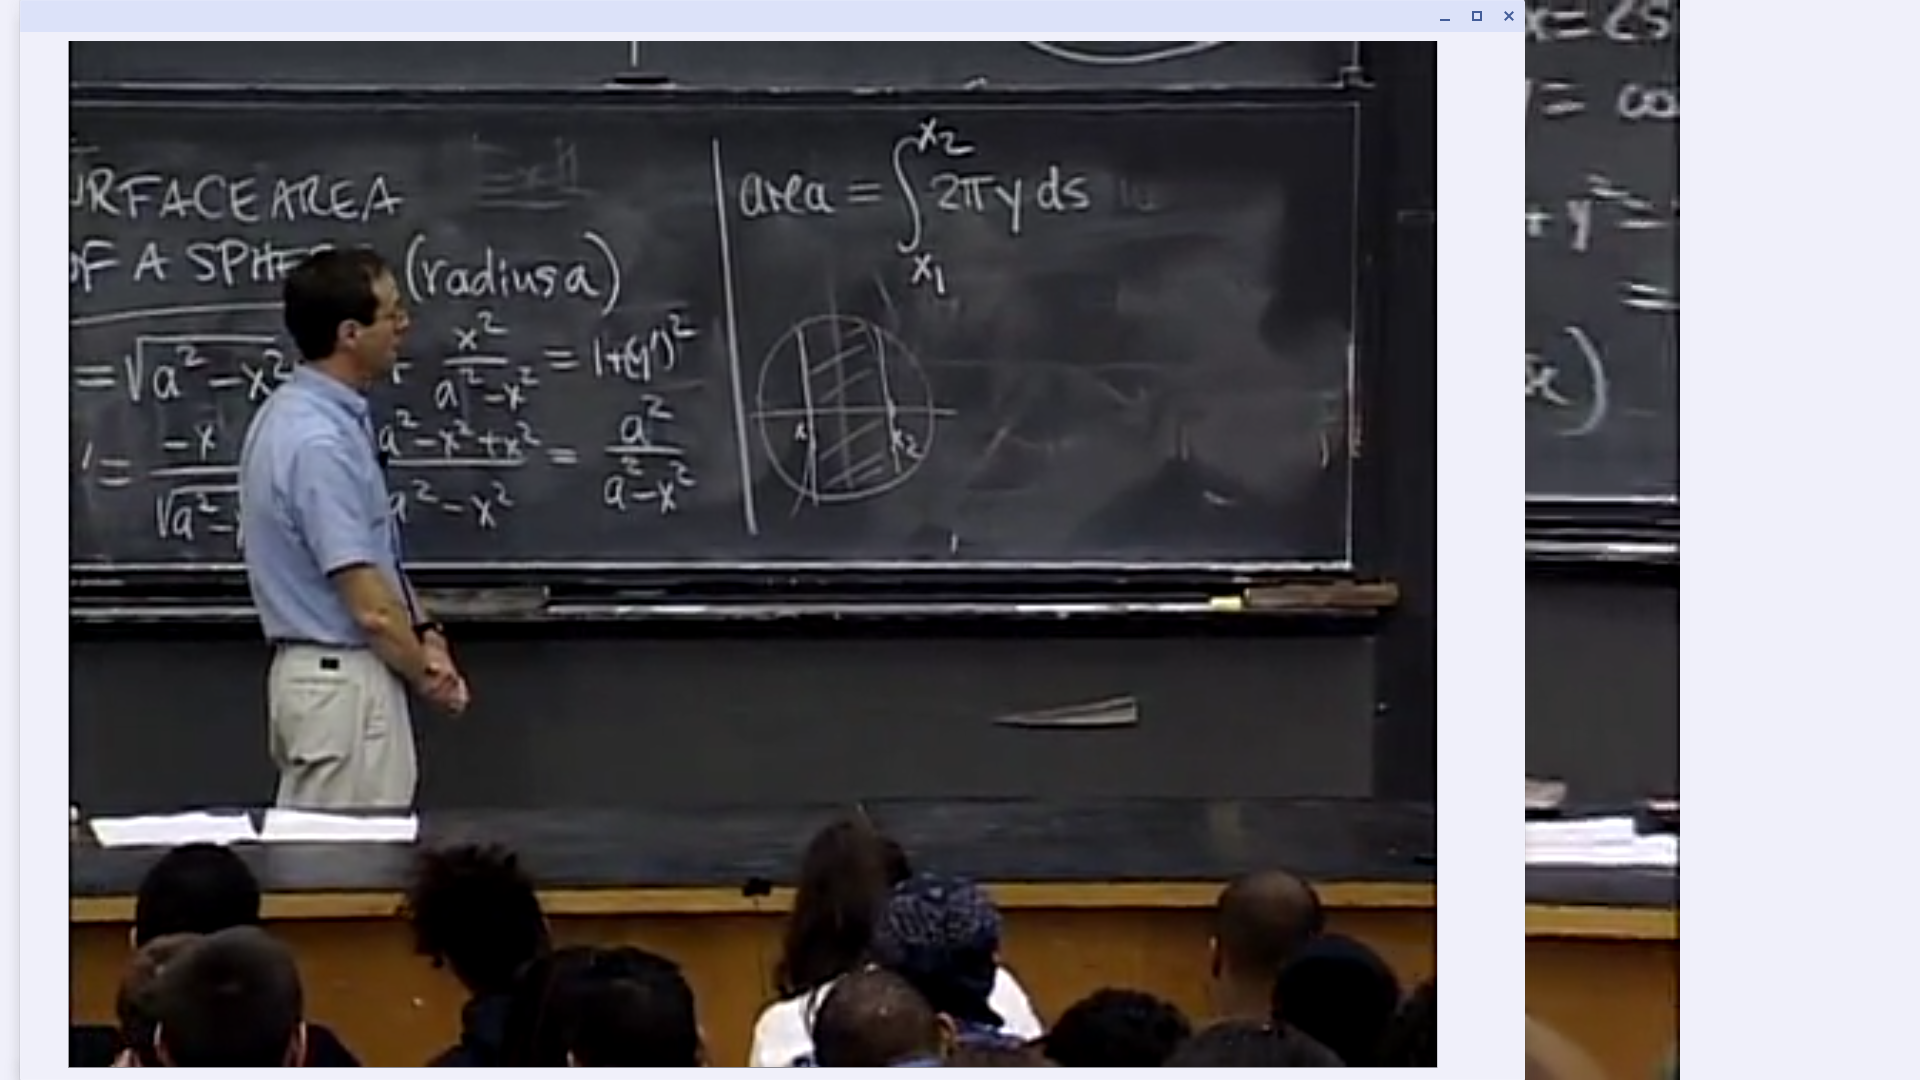 URFACE AREA
OF A SPHE (radius a)
= √a² - x²
x² / a² - x² = 1+(y')²
' = -x / √a² -
a² - x² + x² / a² - x² = a² / a² - x²
area = ∫ x₁ x₂ 2π y ds
x₂
x = 2s
y = co
+ y² =
=
x)